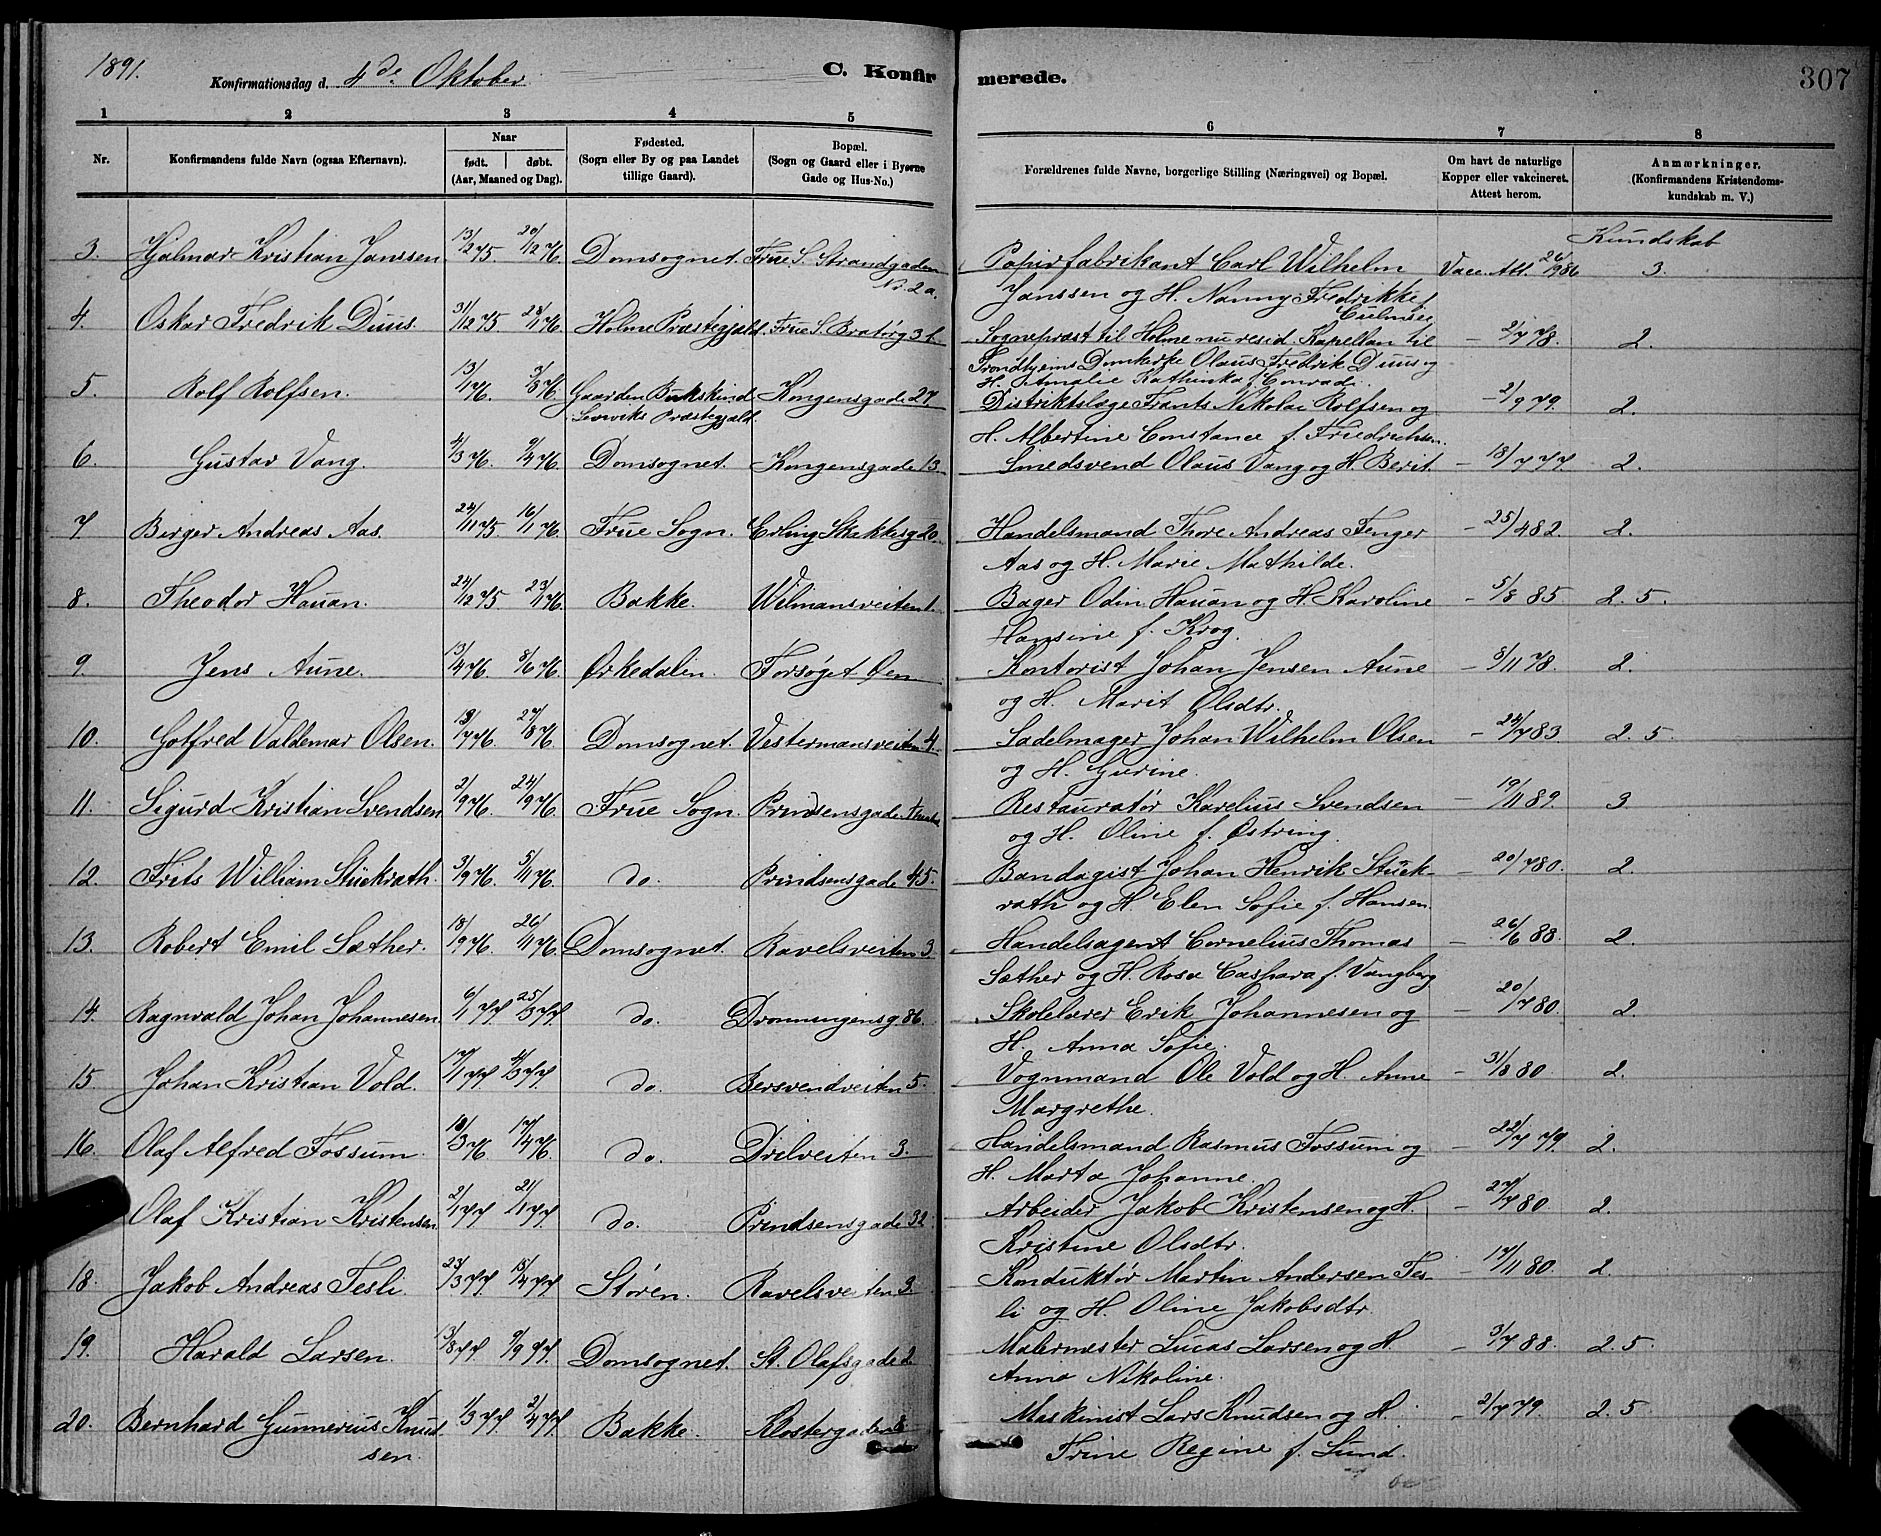 1891.
Konfirmationsdag d. 4de Oktober
C. Konfirmerede.
307
1 2 3 4 5 6 7 8
Nr.
Konfirmandens fulde Navn (ogsaa Efternavn).
Naar
født. døbt.
(Aar, Maaned og Dag).
Fødested.
(Sogn eller By og paa Landet
tillige Gaard).
Bopæl.
(Sogn og Gaard eller i Byerne
Gade og Hus-No.)
Forældrenes fulde Navne, borgerlige Stilling (Næringsvei) og Bopæl.
Om havt de naturlige
Kopper eller vakcineret.
Attest herom.
Anmærkninger.
(Konfirmandens Kristendoms-
kundskab m. V.)
Kundskab
3. Hjalmar Kristian Janssen 13/12 75 20/12 76. Domsognet. Frue S. Strandgaden Papirfabrikant Carl Wilhelm Vacc. Att. 26/9 86 3.
No. 2 a. Janssen og H. Nanny Fredrikke f.
4. Oskar Fredrik Duus. 31/12 75 28/1 76. Holme Præstegjald. Frue S. Bratørg 3 b Sogneprest til Holme nu resid Kapellan til – 2/7 78. 2.
Trondhjems Domkirke Olaus Fredrik Duus og
H. Amalie Kathinka f. Conradi.
5. Rolf Rolfsen. 13/1 76. 3/5 76 Gaarden Bukskind Kongensgade 27 Distriktslæge Frants Nikolai Rolfsen og – 2/9 79. 2.
Præstegjald. H. Albertine Constance f. Friedrichsen.
6. Gustav Vang. 4/3 76. 9/4 76. Domsognet. Kongensgade 13 Smedsvend Olaus Vang og H. Berit. – 18/7 77 2.
7. Birger Andreas Aas. 24/11 75 16/1 76. Frue Sogn. Erling Skakkesg 20. Handelsmand Thore Andreas Fenger – 25/4 82. 2.
Aas og H. Marie Mathilde.
8. Theodor Hauan. 24/12 75 23/1 76. Bakke. Wilmansveiten 1. Bager Odin Hauan og H. Karoline – 5/8 85 2. 5.
Hansine f. Krog.
9. Jens Aune. 13/4 76. 5/6 76. Ørkedalen. Forsøget Øen Kontorist Johan Jensen Aune – 5/11 78. 2.
og H. Marit Olsdtr.
10. Gotfred Valdemar Olsen. 18/7 76. 27/8 76. Domsognet. Vestermansveiten 4. Sadelmager Johan Wilhelm Olsen – 24/7 83 2. 5.
og H. Gurine.
11. Sigurd Kristian Svendsen 2/9 76. 24/9 76 Frue Sogn. Prindsensgade Restauratør Karelius Svendsen – 19/11 89. 3
og H. Oline f. Østring.
12. Frits William Stückrath. 3/9 76. 5/11 76. do. Prindsensgade 45. Bandagist Johan Henrik Stück- – 20/7 80. 2.
rath og H. Elen Sofie f. Hansen.
13. Robert Emil Sæther. 18/9 76. 26/11 76. Domsognet. Ravelsveiten 3 Handelsagent Cornelius Thomas – 26/6 88. 2.
Sæther og H. Rosa Caspara f. Vangberg
14. Ragnvald Johan Johannesen. 6/1 77. 25/3 77. do. Dronningensg 86. Skolelærer Erik Johannesen og – 20/7 80. 2.
H. Anna Sofie.
15. Johan Kristian Vold. 17/1 77 4/3 77. do. Bersvendveiten 5. Vognmand Ole Vold og H. Anne – 31/8 80. 2.
Margrethe.
16. Olaf Alfred Fossum. 18/3 76. 17/4 76. do. Drilveiten 3. Handelsmand Rasmus Fossum og – 22/7 79. 2.
H. Marta Johanne.
Olaf Kristian Kristensen 2/1 77 21/1 77. do. Prindsensgade 32 Arbeider Jakob Kristensen og H. – 27/7 80. 2.
Kristine Olsdtr.
18. Jakob Andreas Tesli. 23/3 77 15/4 77 Støren. Ravelsveiten 3. Konduktør Martin Andersen Tes- – 17/11 80. 2.
li og H. Oline Jakobsdtr.
19. Harald Larsen. 13/8 77. 9/9 77. Domsognet. St. Olafsgade 2 Malermester Lucas Larsen og H. – 3/7 88. 2. 5
Anna Nikoline.
20. Bernhard Gunnerius Knud- 1/3 77 2/4 77 Bakke. Klostergaden Maskinist Lars Knudsen og H. – 2/7 79. 2. 5
sen. Trine Regine f. Lund.